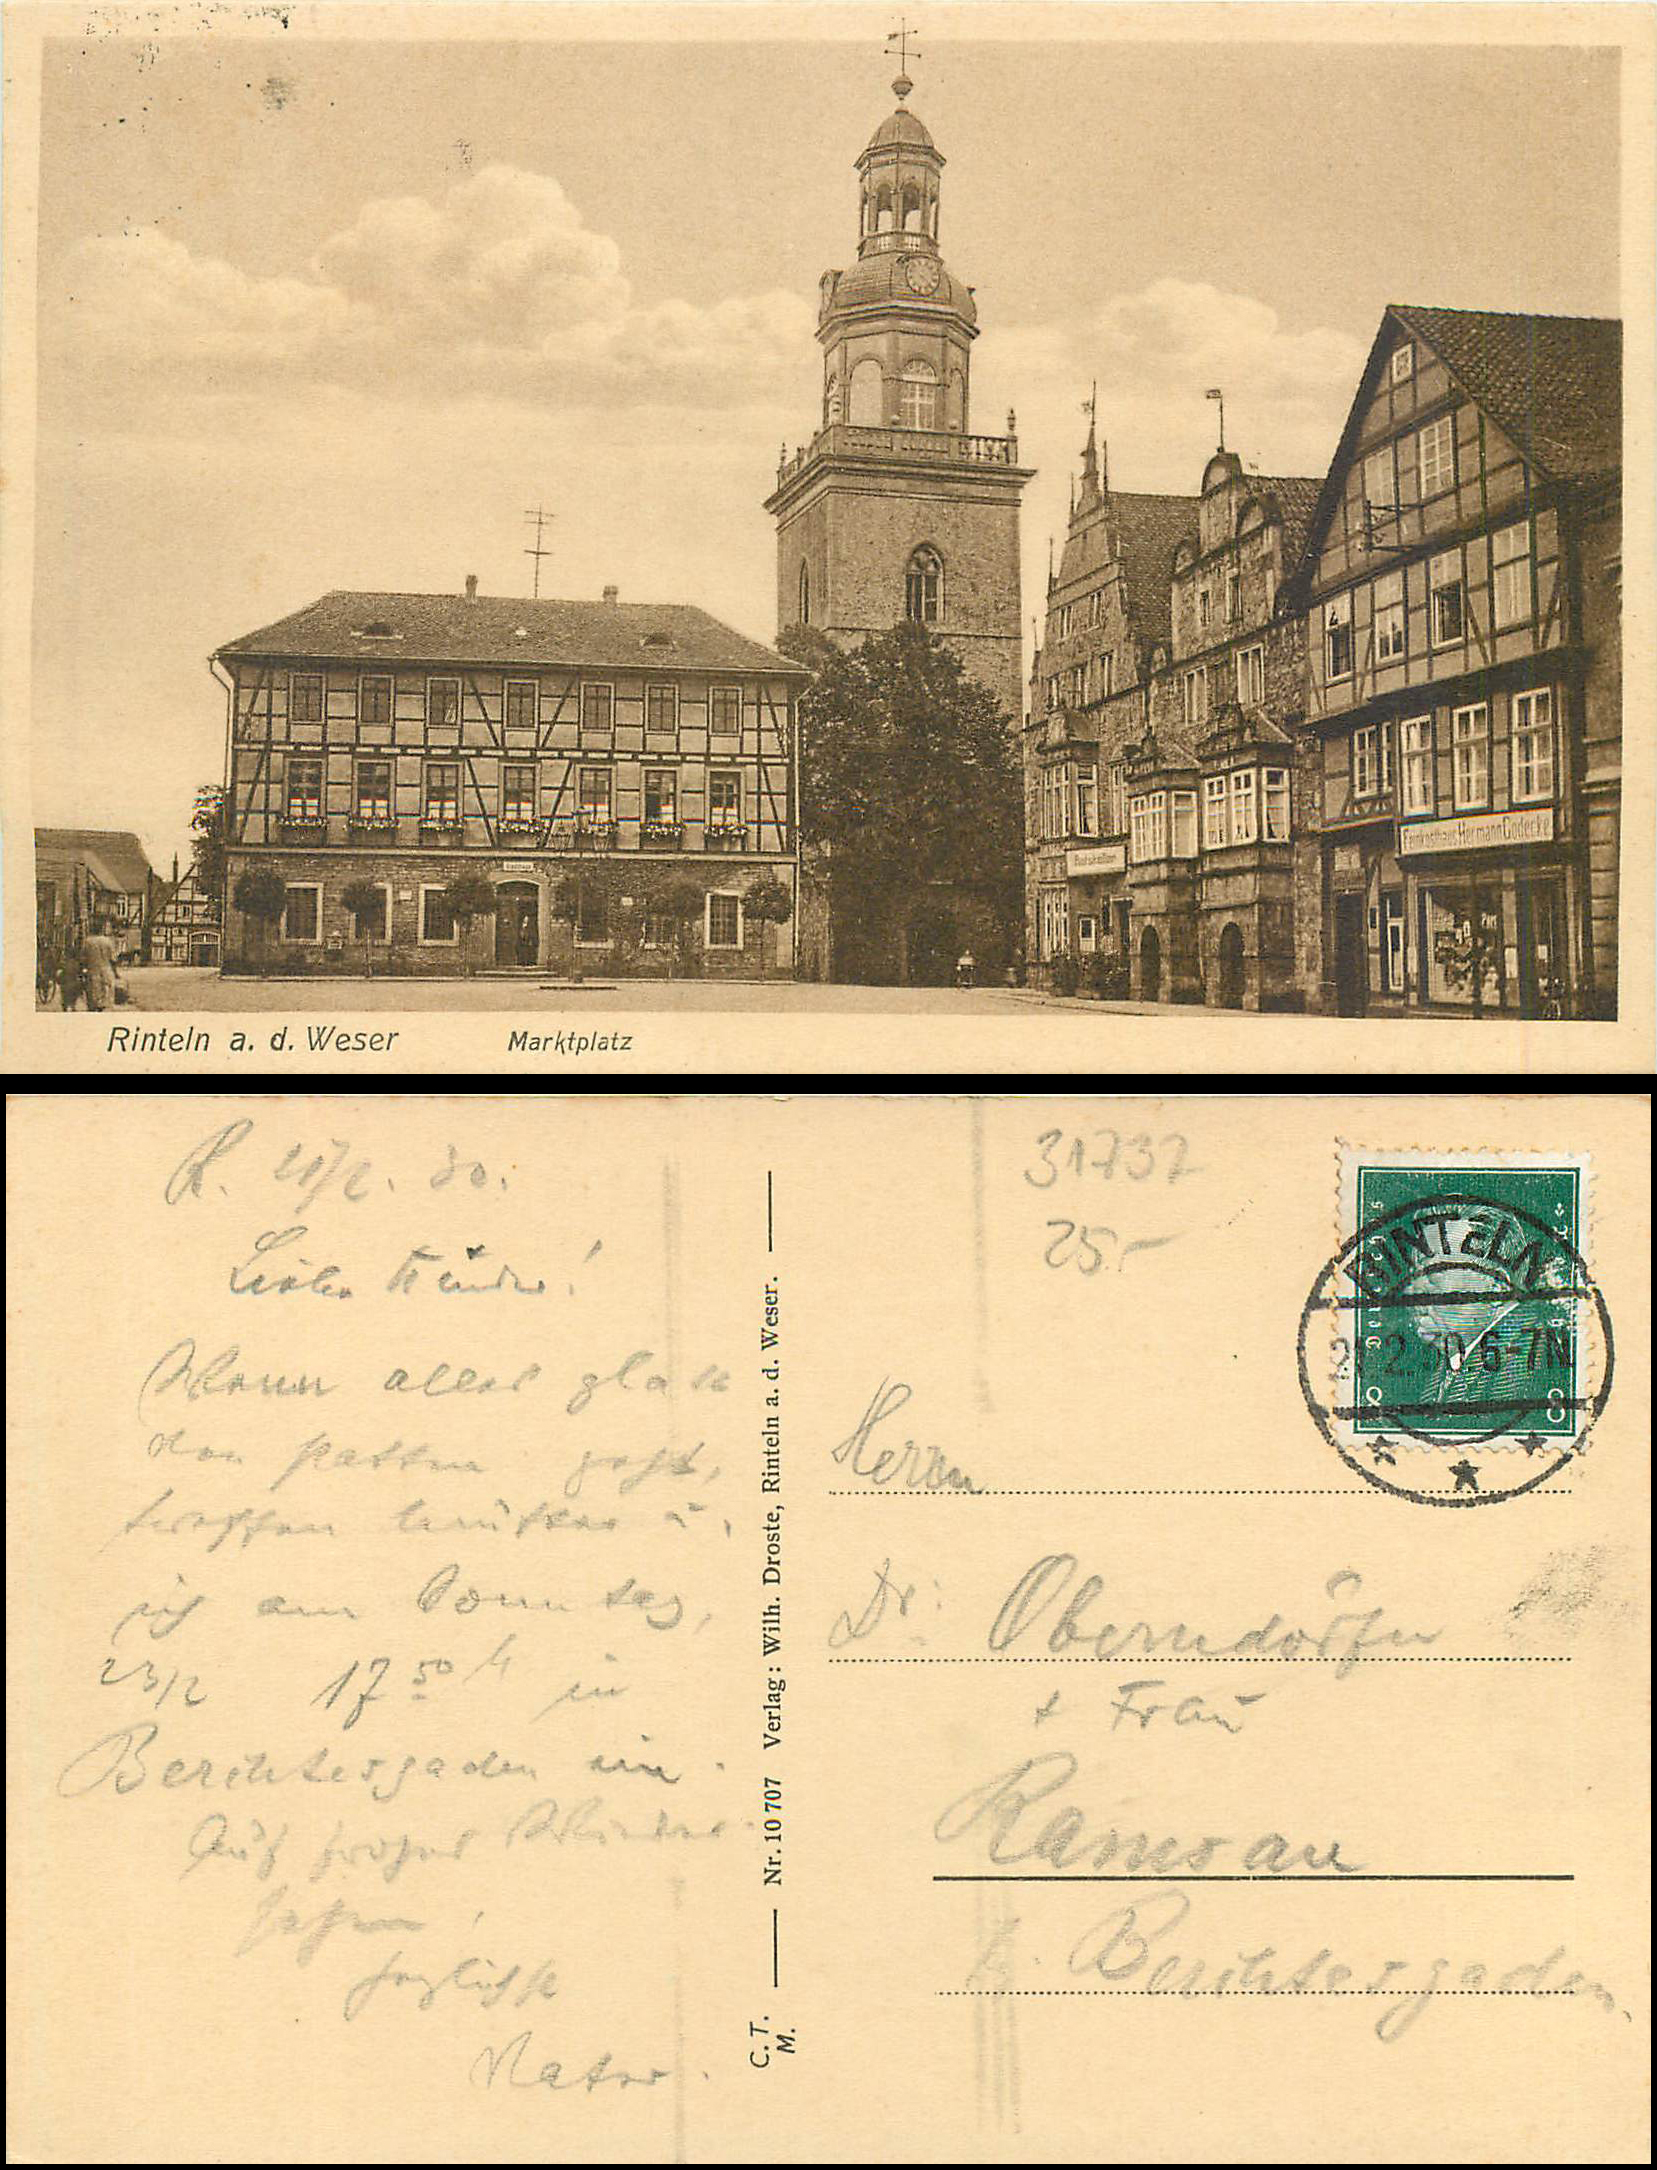 Ratskeller
Hermann Gödecke
Rinteln a. d. Weser Marktplatz
R. 21/2. 30.
Liebe Kinder!
Wenn alles glatt
von statten geht,
treffen Mutter u.
ich am Sonntag,
23/2 17 50 h in
Berchtesgaden ein.
Auf frohes Wieder-
sehen!
Herzlichst
Vater.
C. T.
M.
Nr. 10 707 Verlag: Wilh. Droste, Rinteln a. d. Weser.
31732
25.-
Deutsches Reich
8 8
RINTELN
21.2.30.6-7N
Herrn
Dr. Oberndörfer
+ Frau
Ramsau
b. Berchtesgaden.